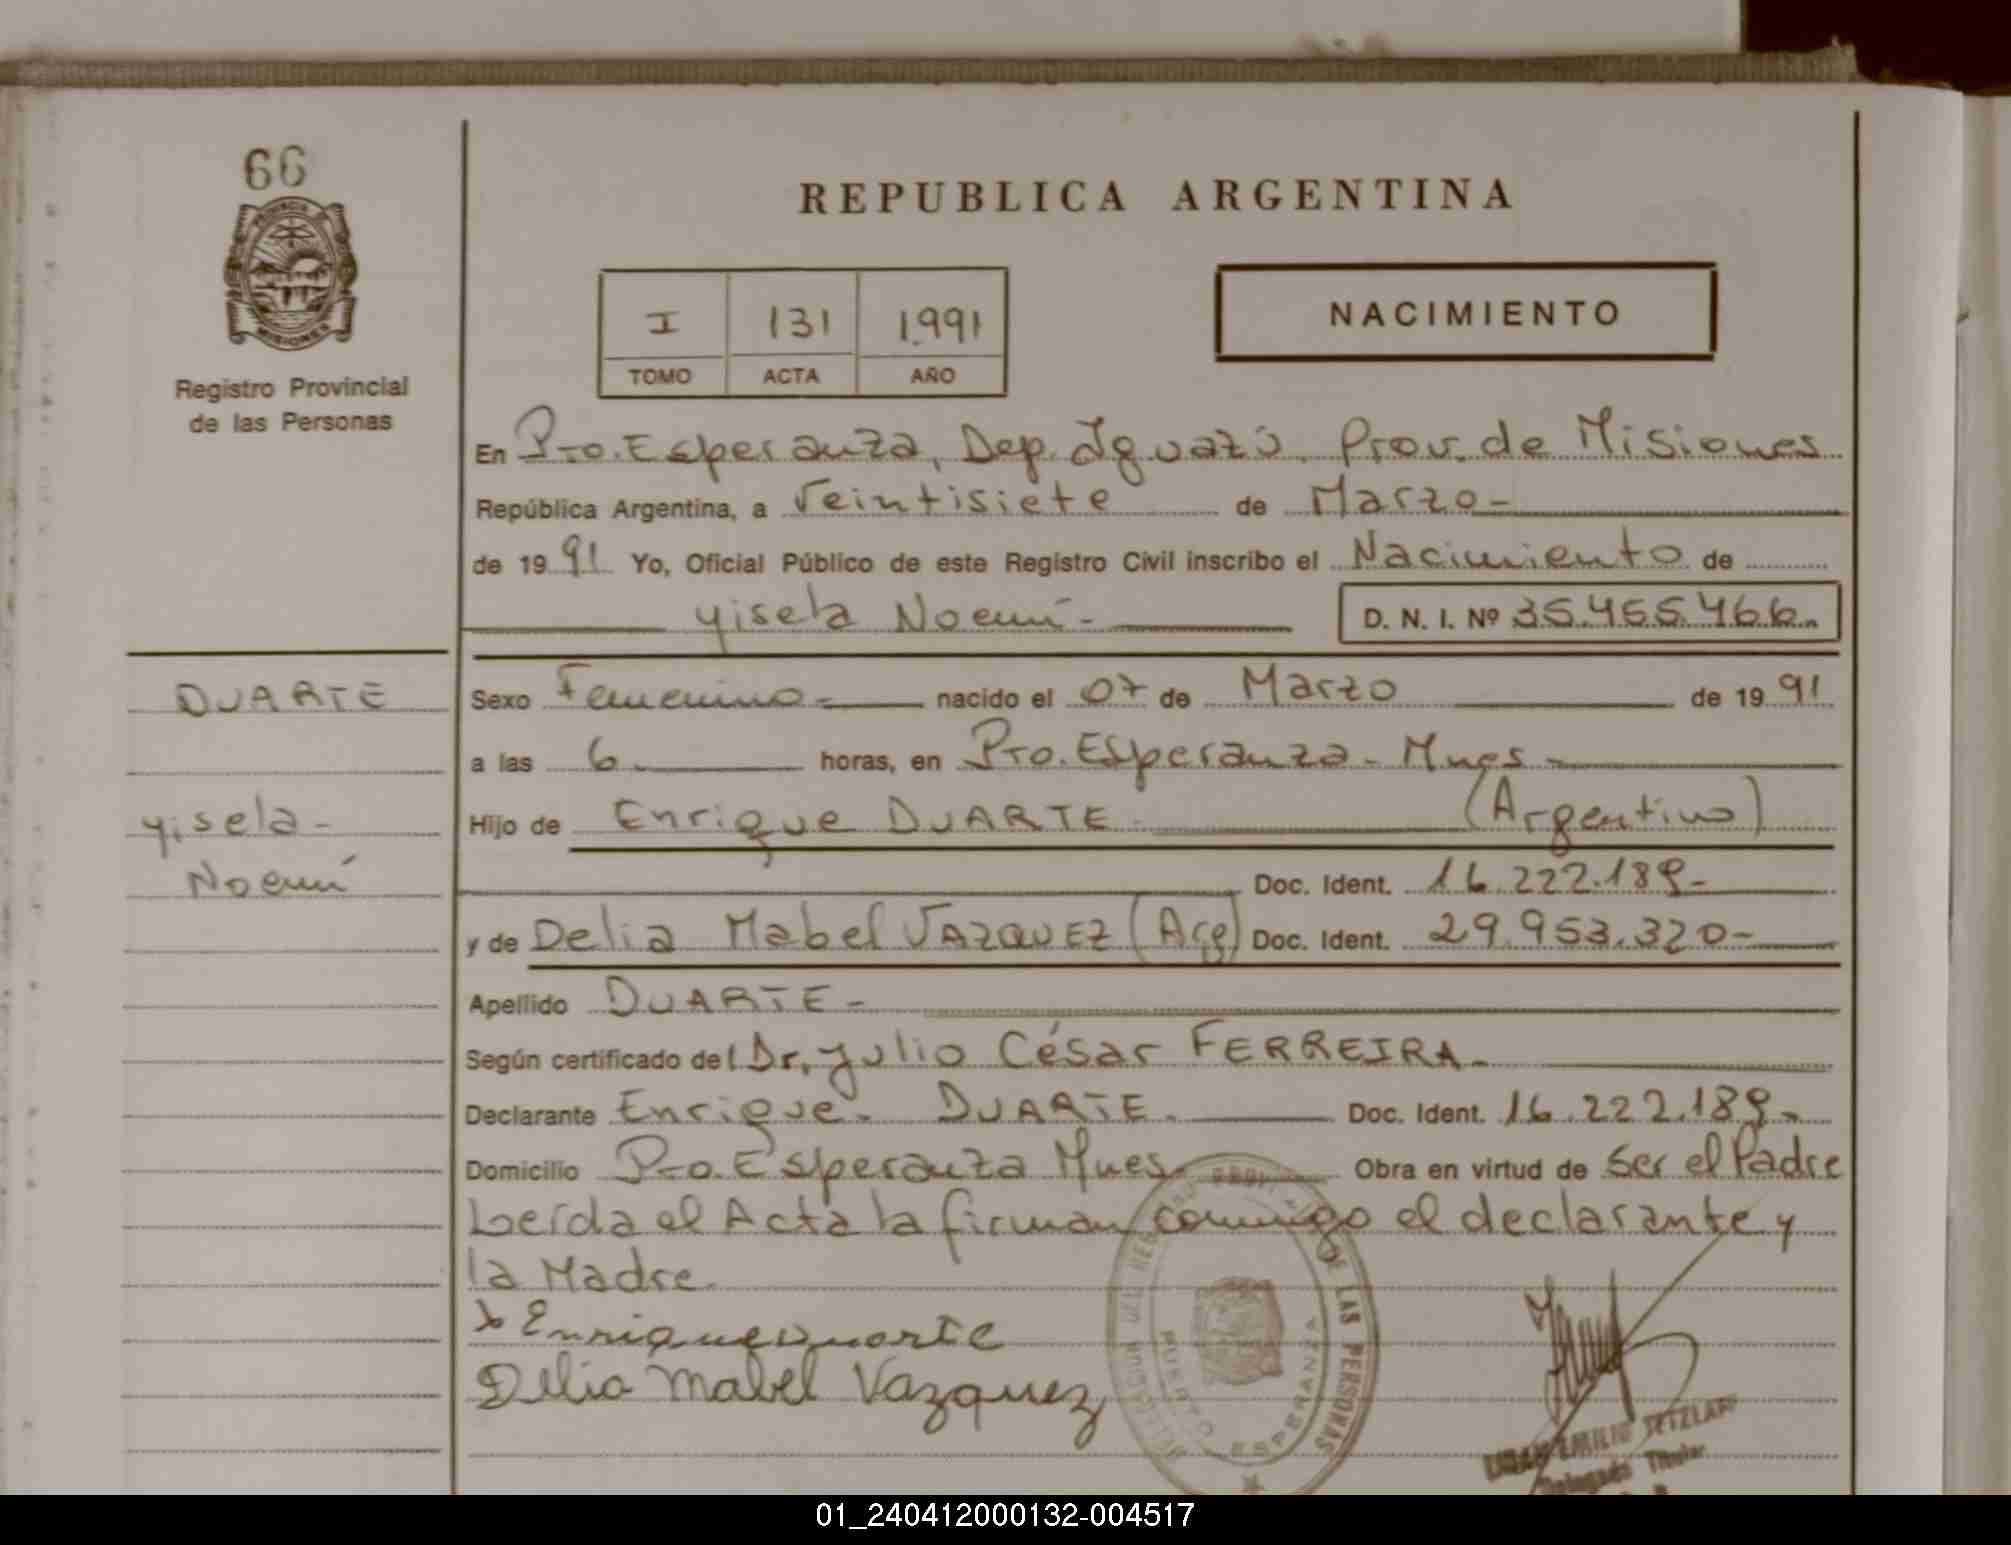 66
REPUBLICA ARGENTINA
MISIONES
Registro Provincial
de las Personas
I 131 1.991
TOMO ACTA AÑO
NACIMIENTO
En Pto. Esperanza, Dep. Iguazú. Prov. de Misiones
República Argentina, a Veintisiete de Marzo-
de 1991 Yo, Oficial Público de este Registro Civil inscribo el Nacimiento de
Yisela Noemí- D. N. I. Nº 35.455.466.
DUARTE
Sexo Femenino- nacido el 07 de Marzo de 1991
a las 6 horas, en Pto. Esperanza - Mnes -
Yisela-
Hijo de Enrique DUARTE (Argentino)
Noemí
Doc. Ident. 16.222.189-
y de Delia Mabel VAZQUEZ (Arg) Doc. Ident. 29.953.320-
Apellido DUARTE-
Según certificado del Dr. Julio César FERREIRA-
Declarante Enrique. DUARTE. Doc. Ident. 16.222.189-
Domicilio Pto. Esperanza Mnes- Obra en virtud de Ser el Padre
Leída el Acta la firman conmigo el declarante y
la Madre.
Enrique Duarte
Delia Mabel Vazquez
DE LAS PERSONAS
PUERTO ESPERANZA
EMILIO
Delegado Titular
01_240412000132-004517